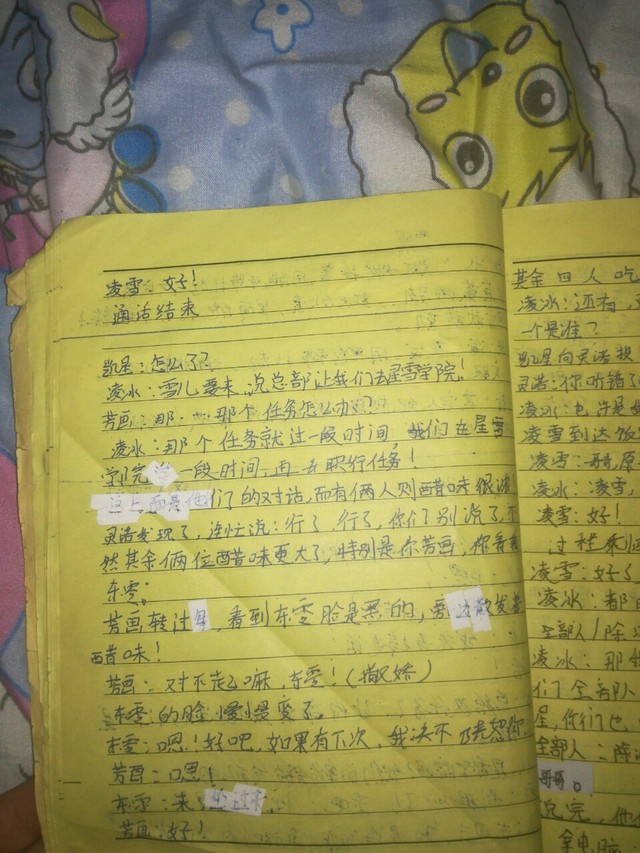 凌雪：好！
通话结束
凯星：怎么了？
凌冰：雪儿要来，说总部让我们去星雪学院！
芳画：那…那个任务怎么办？
凌冰：那个任务就过一段时间，我们在星雪
学院 一段时间，再去职行任务！
这上面是他们的对话，而有俩人则醋味很浓
灵诺发现了，连忙说：行了，行了，你们别说了，不
然其余俩位醋味更大了，特别是你芳画，你看看
东雫：
芳画转过身，看到东雫脸是黑的，旁边散发着
醋味！
芳画：对不起嘛，东雫！（撒娇）
东雫的脸慢慢变了，
东雫：嗯！好吧，如果有下次，我决不饶恕你
芳画：嗯！
东雫：来，
芳画：好！
其余四人吃
凌冰：还有，
一个是谁？
凯星向灵诺投
灵诺：你听错了
凌冰：也许是
凌雪到达饭
凌雪：哥，原
凌冰：凌雪，
凌雪：好！
过程乘
凌雪：好了
凌冰：都
全部人/除
凌冰：那
们了全部人
星，你们也
全部人：陈
哥哥。
说完，他
拿电脑